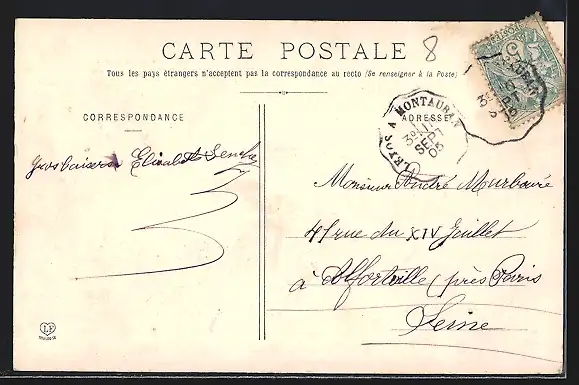 CARTE POSTALE
8
Tous les pays étrangers n'acceptent pas la correspondance au recto (Se renseigner à la Poste)
CORRESPONDANCE
ADRESSE
A MONTAUBAN
11
SEPT
05
Gros baisers
Monsieur André
41 rue du XIV Juillet
à Alfortville (près Paris
Seine
LF
TOULOUSE